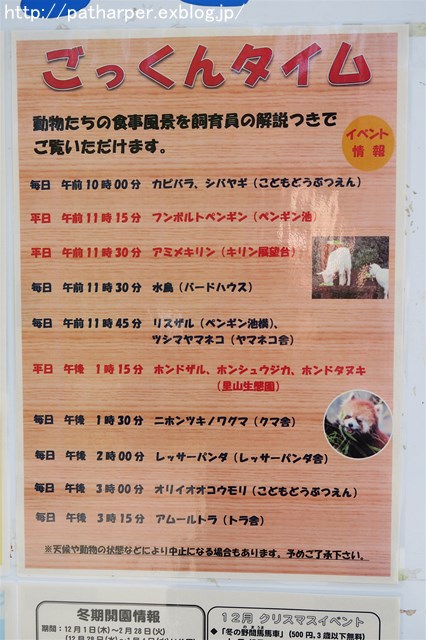 http://patharper.exblog.jp/
ごっくんタイム
動物たちの食事風景を飼育員の解説つきで
ご覧いただけます。
イベント
情報
毎日 午前10時00分 カピバラ、シバヤギ（こどもどうぶつえん）
平日 午前11時15分 フンボルトペンギン（ペンギン池）
平日 午前11時30分 アミメキリン（キリン展望台）
毎日 午前11時30分 水鳥（バードハウス）
毎日 午前11時45分 リスザル（ペンギン池横）、
ツシマヤマネコ（ヤマネコ舎）
平日 午後 1時15分 ホンドザル、ホンシュウジカ、ホンドタヌキ
（里山生態園）
毎日 午後 1時30分 ニホンツキノワグマ（クマ舎）
毎日 午後 2時00分 レッサーパンダ（レッサーパンダ舎）
毎日 午後 3時00分 オリイオオコウモリ（こどもどうぶつえん）
毎日 午後 3時15分 アムールトラ（トラ舎）
※天候や動物の状態などにより中止になる場合もあります。予めご了承下さい。
冬期開園情報
期間：12月1日(木)～2月28日(火)
12月 クリスマスイベント
◆「冬の野間馬馬車」（500円。3歳以下無料）